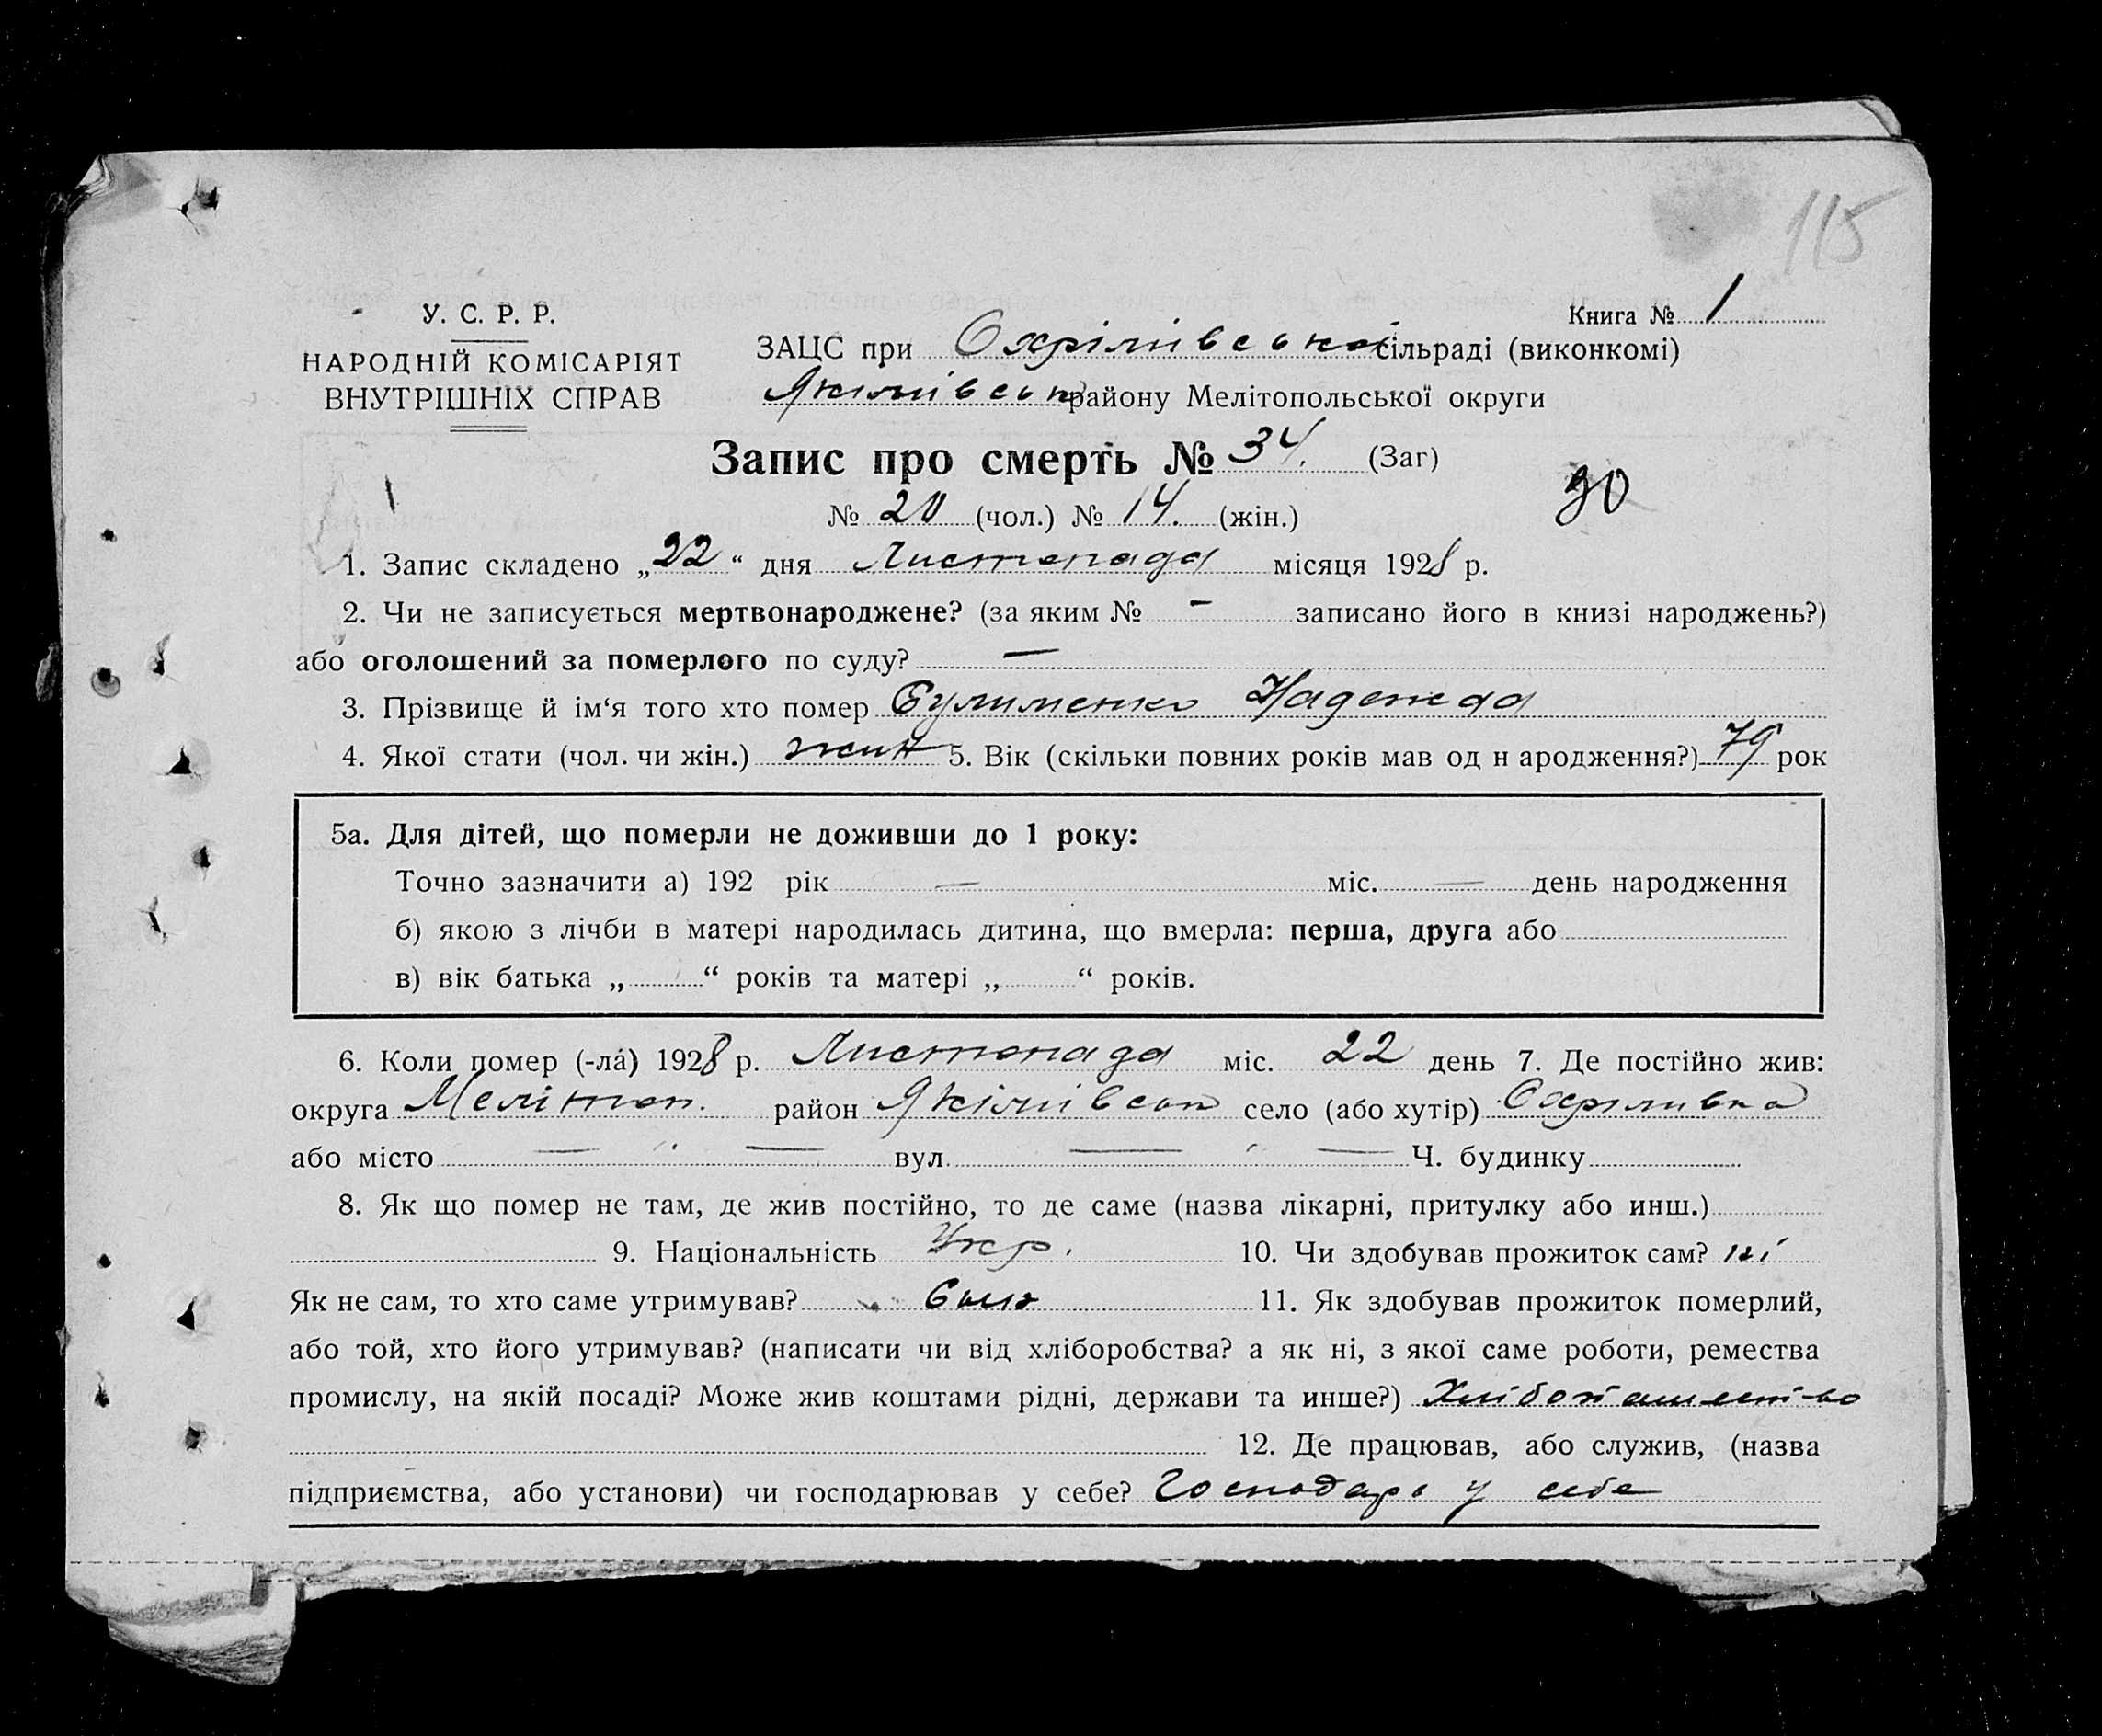 115
У. С. Р. Р.
НАРОДНІЙ КОМІСАРІЯТ
ВНУТРІШНІХ СПРАВ
Книга № 1
ЗАЦС при Охрімівської сільраді (виконкомі)
Якімівськ району Мелітопольської округи
Запис про смерть № 34. (Заг)
№ 20 (чол.) № 14. (жін.)
30
1. Запис складено „22“ дня Листопада місяця 1928 р.
2. Чи не записується мертвонароджене? (за яким № - записано його в книзі народжень?)
або оголошений за померлого по суду? —
3. Прізвище й ім‘я того хто помер Булименко Надежда
4. Якої стати (чол. чи жін.) жин 5. Вік (скільки повних років мав од н ародження?) 79 рок
5а. Для дітей, що померли не доживши до 1 року:
Точно зазначити а) 192 рік — міс. — день народження
б) якою з лічби в матері народилась дитина, що вмерла: перша, друга або
в) вік батька „ “ років та матері „ “ років.
6. Коли помер (-ла) 1928 р. Листопада міс. 22 день 7. Де постійно жив:
округа Мелітоп. район Якімівськ село (або хутір) Охрімивка
або місто — " — вул. — " — Ч. будинку
8. Як що помер не там, де жив постійно, то де саме (назва лікарні, притулку або инш.)
9. Національність Укр. 10. Чи здобував прожиток сам? ні
Як не сам, то хто саме утримував? 11. Як здобував прожиток померлий,
або той, хто його утримував? (написати чи від хліборобства? а як ні, з якої саме роботи, ремества
промислу, на якій посаді? Може жив коштами рідні, держави та инше?) Хлібопашество
12. Де працював, або служив, (назва
підприємства, або установи) чи господарював у себе? Господарь у себе